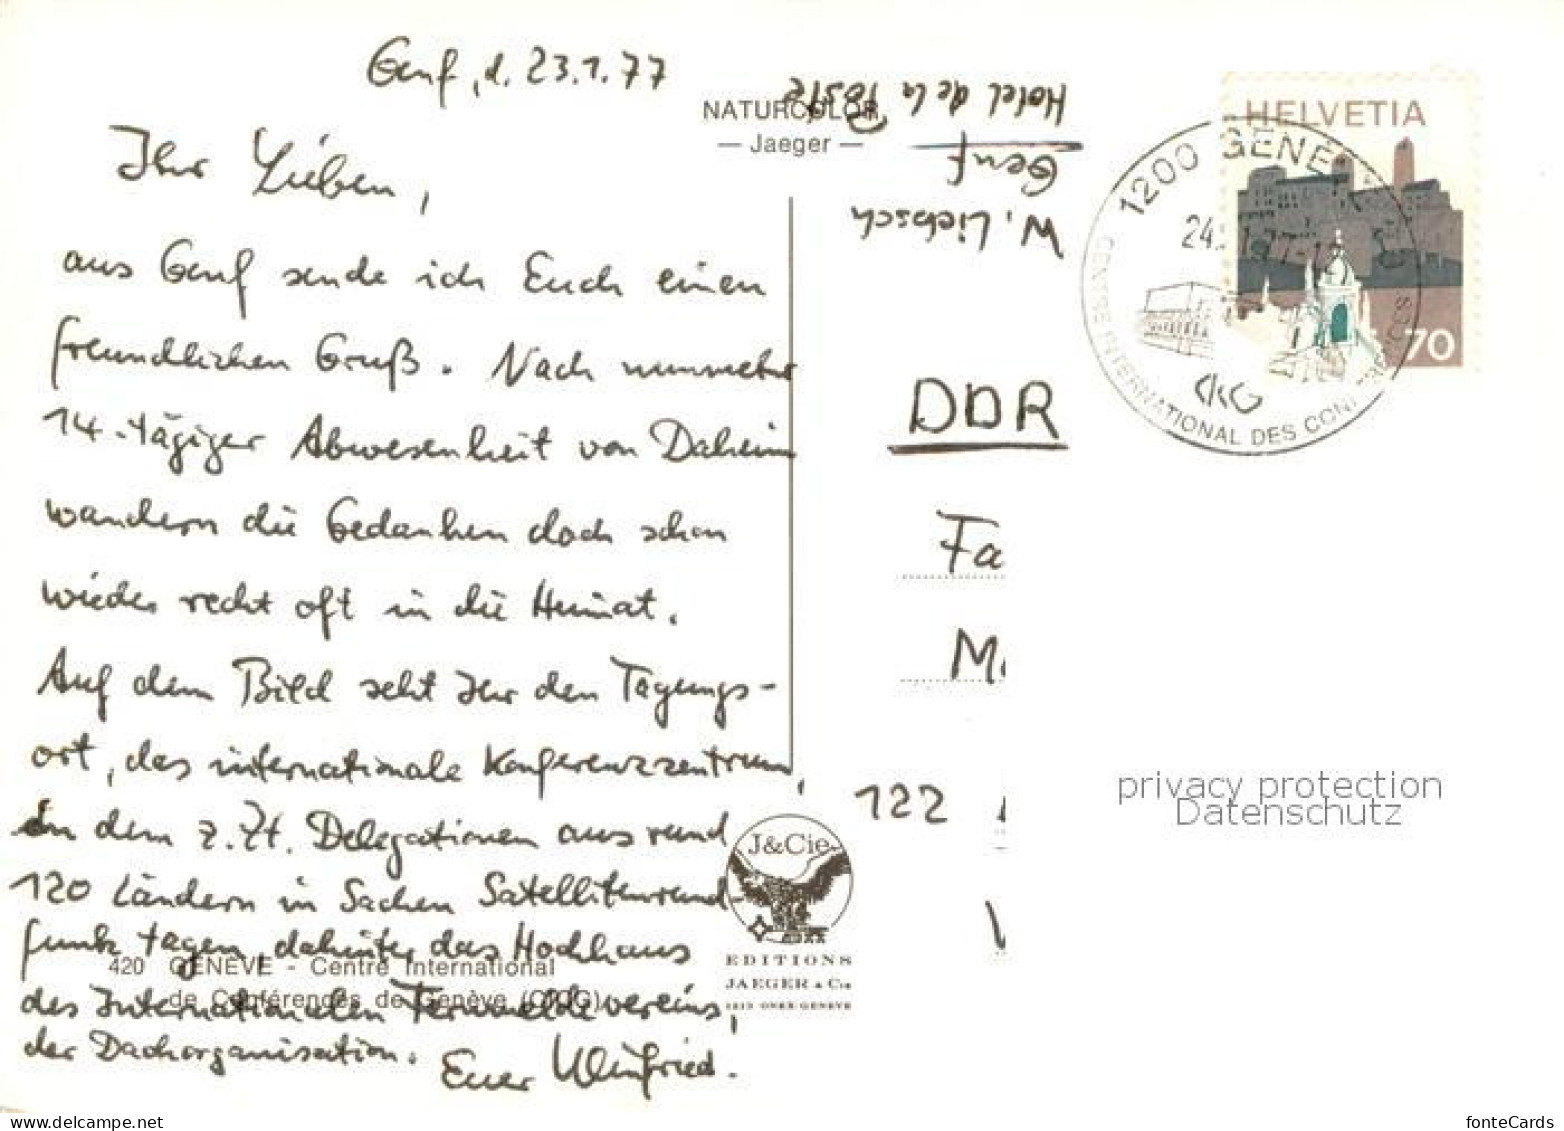 Genf, d. 23.1.77
Ihr Lieben,
aus Genf sende ich Euch einen
freundlichen Gruß. Nach nunmehr
14-tägiger Abwesenheit von Daheim
wandern die Gedanken doch schon
wieder recht oft in die Heimat.
Auf dem Bild seht Ihr den Tagungs-
ort, das internationale Konferenzzentrum,
in dem z.Zt. Delegationen aus rund
120 Ländern in Sachen Satellitenrund-
funk tagen, dahinter das Hochhaus
des Internationalen Fernmeldevereins,
der Dachorganisation.
Euer Winfried.
420 GENÈVE - Centre International
de Conférences de Genève (CICG)
NATURCOLOR
— Jaeger —
W. Liebsch
Genf
Hotel de la Poste
J&Cie
EDITIONS
JAEGER & Cie
1213 ONEX-GENÈVE
HELVETIA
70
1200 GENÈVE
CENTRE INTERNATIONAL DES CONFÉRENCES
CICG
DDR
Fa
M
122
privacy protection
Datenschutz
www.delcampe.net
fonteCards